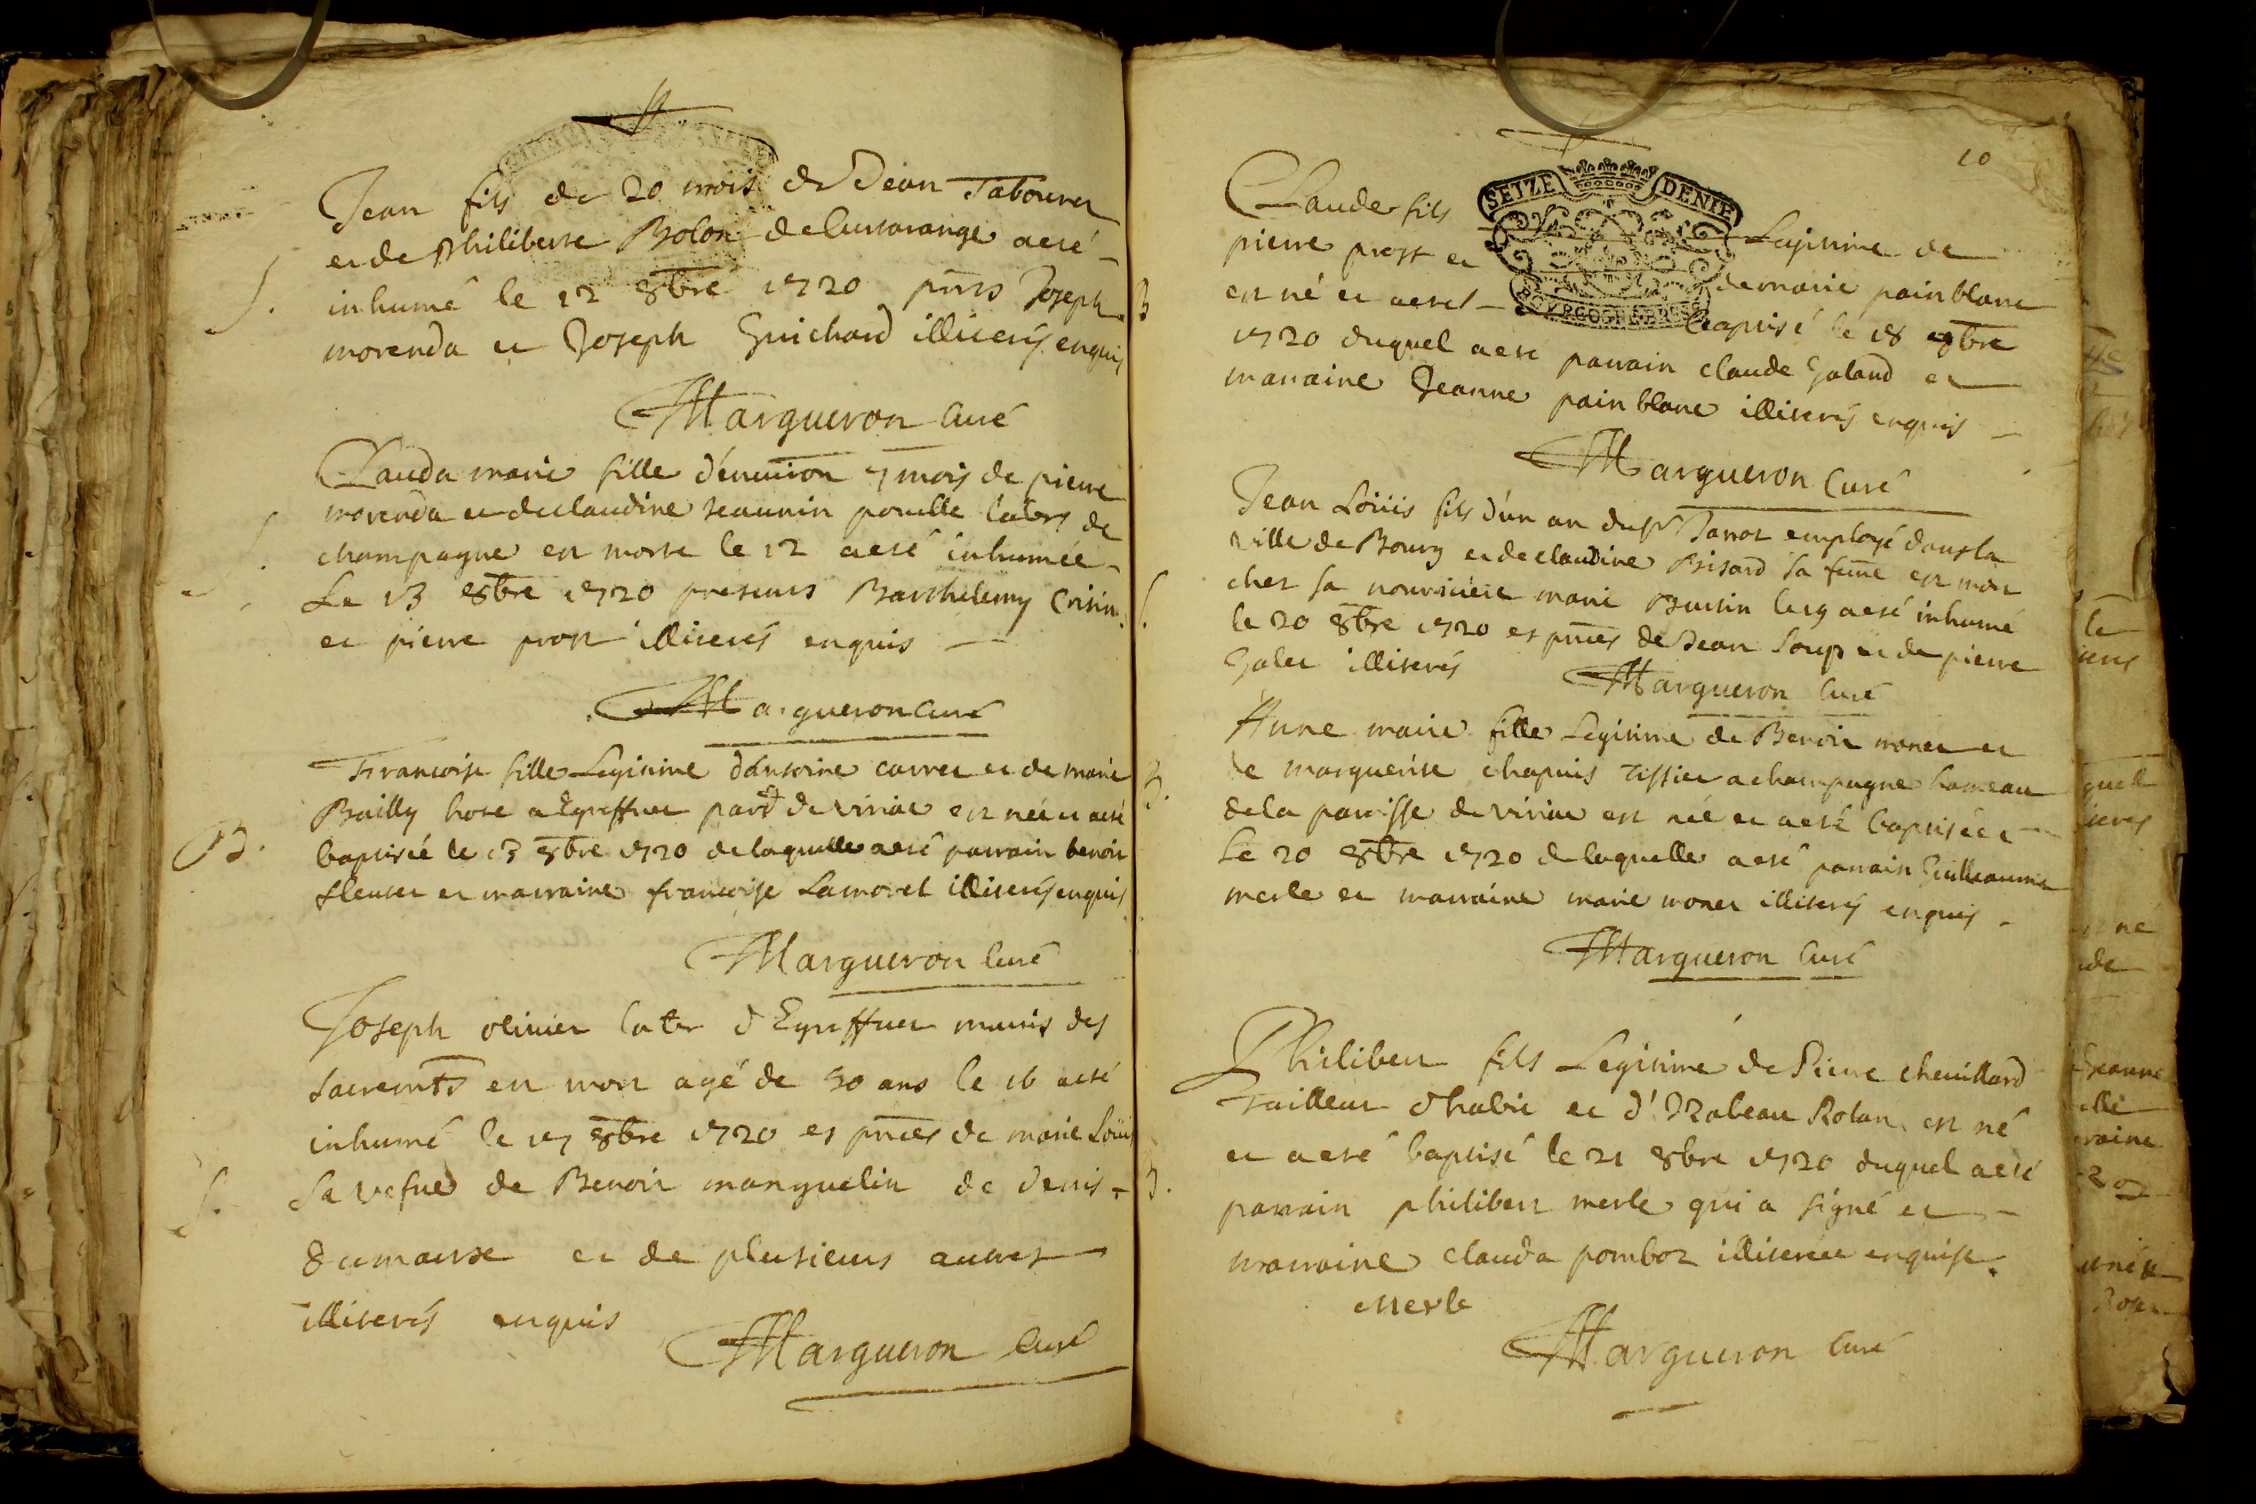 Jean fils de 20 mois de Jean Tabouret
et de Philiberte Bolon de Curtarange a eté
inhumé le 12 8bre 1720 pnts Joseph
morenda et Joseph Guichard illiterés enquis
Margueron Curé
Clauda marie fille d'environ 7 mois de pierre
morenda et de claudine Jeannin labrs de
champagne est morte le 12 a eté inhumée
Le 13 8bre 1720 presents Barthelemy
et pierre prost illiterés enquis
Margueron Curé
Francoise fille Legitime d'Antoine carret et de marie
Bailly hote a Egreffuet pard de viriat est née et a eté
baptisée le 13 8bre 1720 de laquelle a eté parrain benoit
et marraine francoise Lamorel illiterés enquis
Margueron Curé
Joseph olivier labr d'Egreffuet munis des
sacremts est mort agé de 50 ans le 16 a eté
inhumé le 17 8bre 1720 es pnces de marie Loüis
sa vefue de Benoit manguelin de denis
et de plusieurs autres
illiterés enquis
Margueron Curé
10
SEIZE DENIE
Claude fils Legitime de
pierre prost et de marie painblanc
est né et a eté baptisé le 18 8bre
1720 duquel a eté parrain claude Galand et
marraine Jeanne painblanc illiterés enquis
Margueron Curé
Jean Loüis fils d'un an du sr Tarrot employé dans la
ville de Bourg et de claudine Brisard sa feme est mort
chez sa nourriciere marie Burtin le 19 a eté inhumé
le 20 8bre 1720 es pnces de Jean Loup et de pierre
Galet illiterés
Margueron Curé
Anne marie fille Legitime de Benoit monet et
de marguerite chapuis Tissier a champagne hameau
de la parroisse de viriat est née et a eté baptisée
Le 20 8bre 1720 de laquelle a eté parrain Guilleaume
merle et marraine marie monet illiterés enquis
Margueron Curé
Philibert fils Legitime de Pierre chevillard
Tailleur d'habit et d'Izabeau Rolan est né
et a eté baptisé le 21 8bre 1720 duquel a eté
parrain philibert merle qui a signé et
marraine clauda pombot illiterée enquise
Merle
Margueron Curé